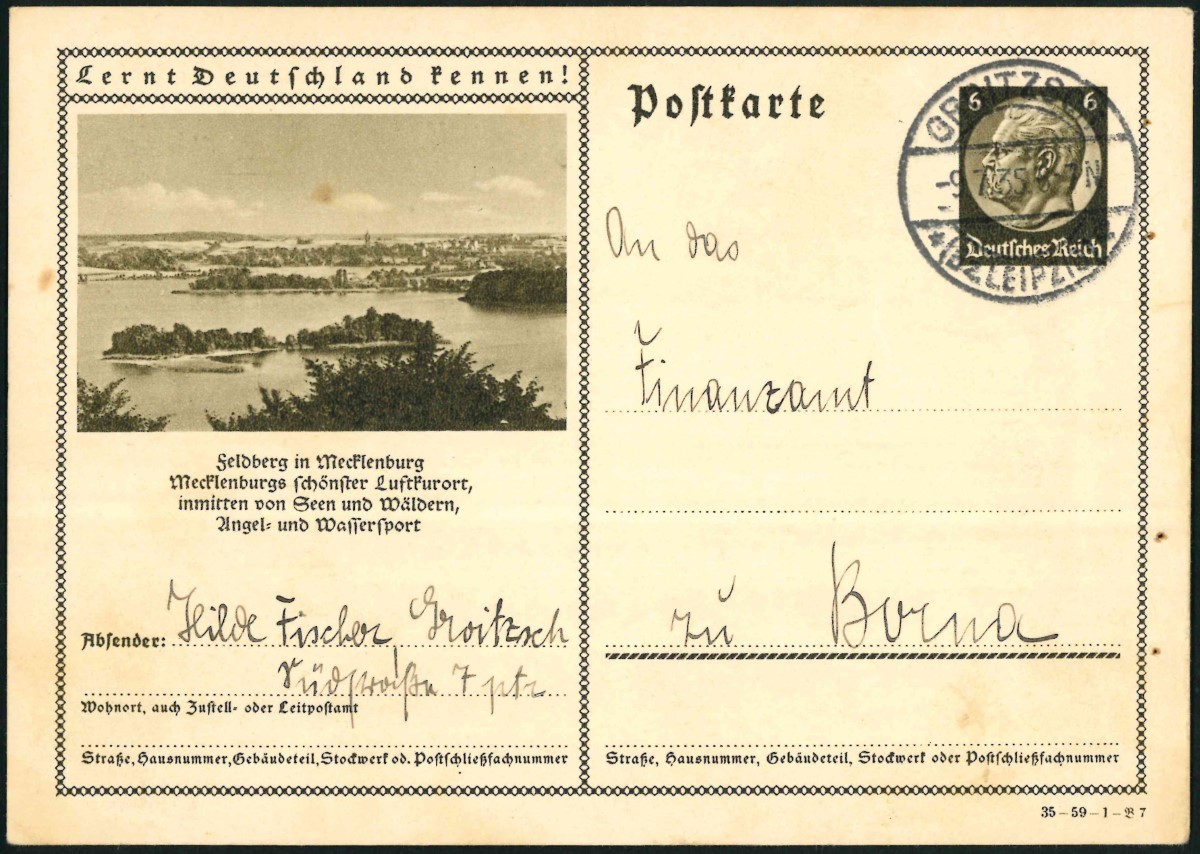 Lernt Deutschland kennen!
Feldberg in Mecklenburg
Mecklenburgs schönster Luftkurort,
inmitten von Seen und Wäldern,
Angel- und Wassersport
Absender: Hilde Fischer, Groitzsch
Südstraße 7 ptr
Wohnort, auch Zustell- oder Leitpostamt
Straße, Hausnummer, Gebäudeteil, Stockwerk od. Postschließfachnummer
Postkarte
6 6
Deutsches Reich
GROITZSCH
9.7.35 -7 N
* (BZ. LEIPZIG) *
An das
Finanzamt
zu Borna
Straße, Hausnummer, Gebäudeteil, Stockwerk oder Postschließfachnummer
35-59-1-B 7